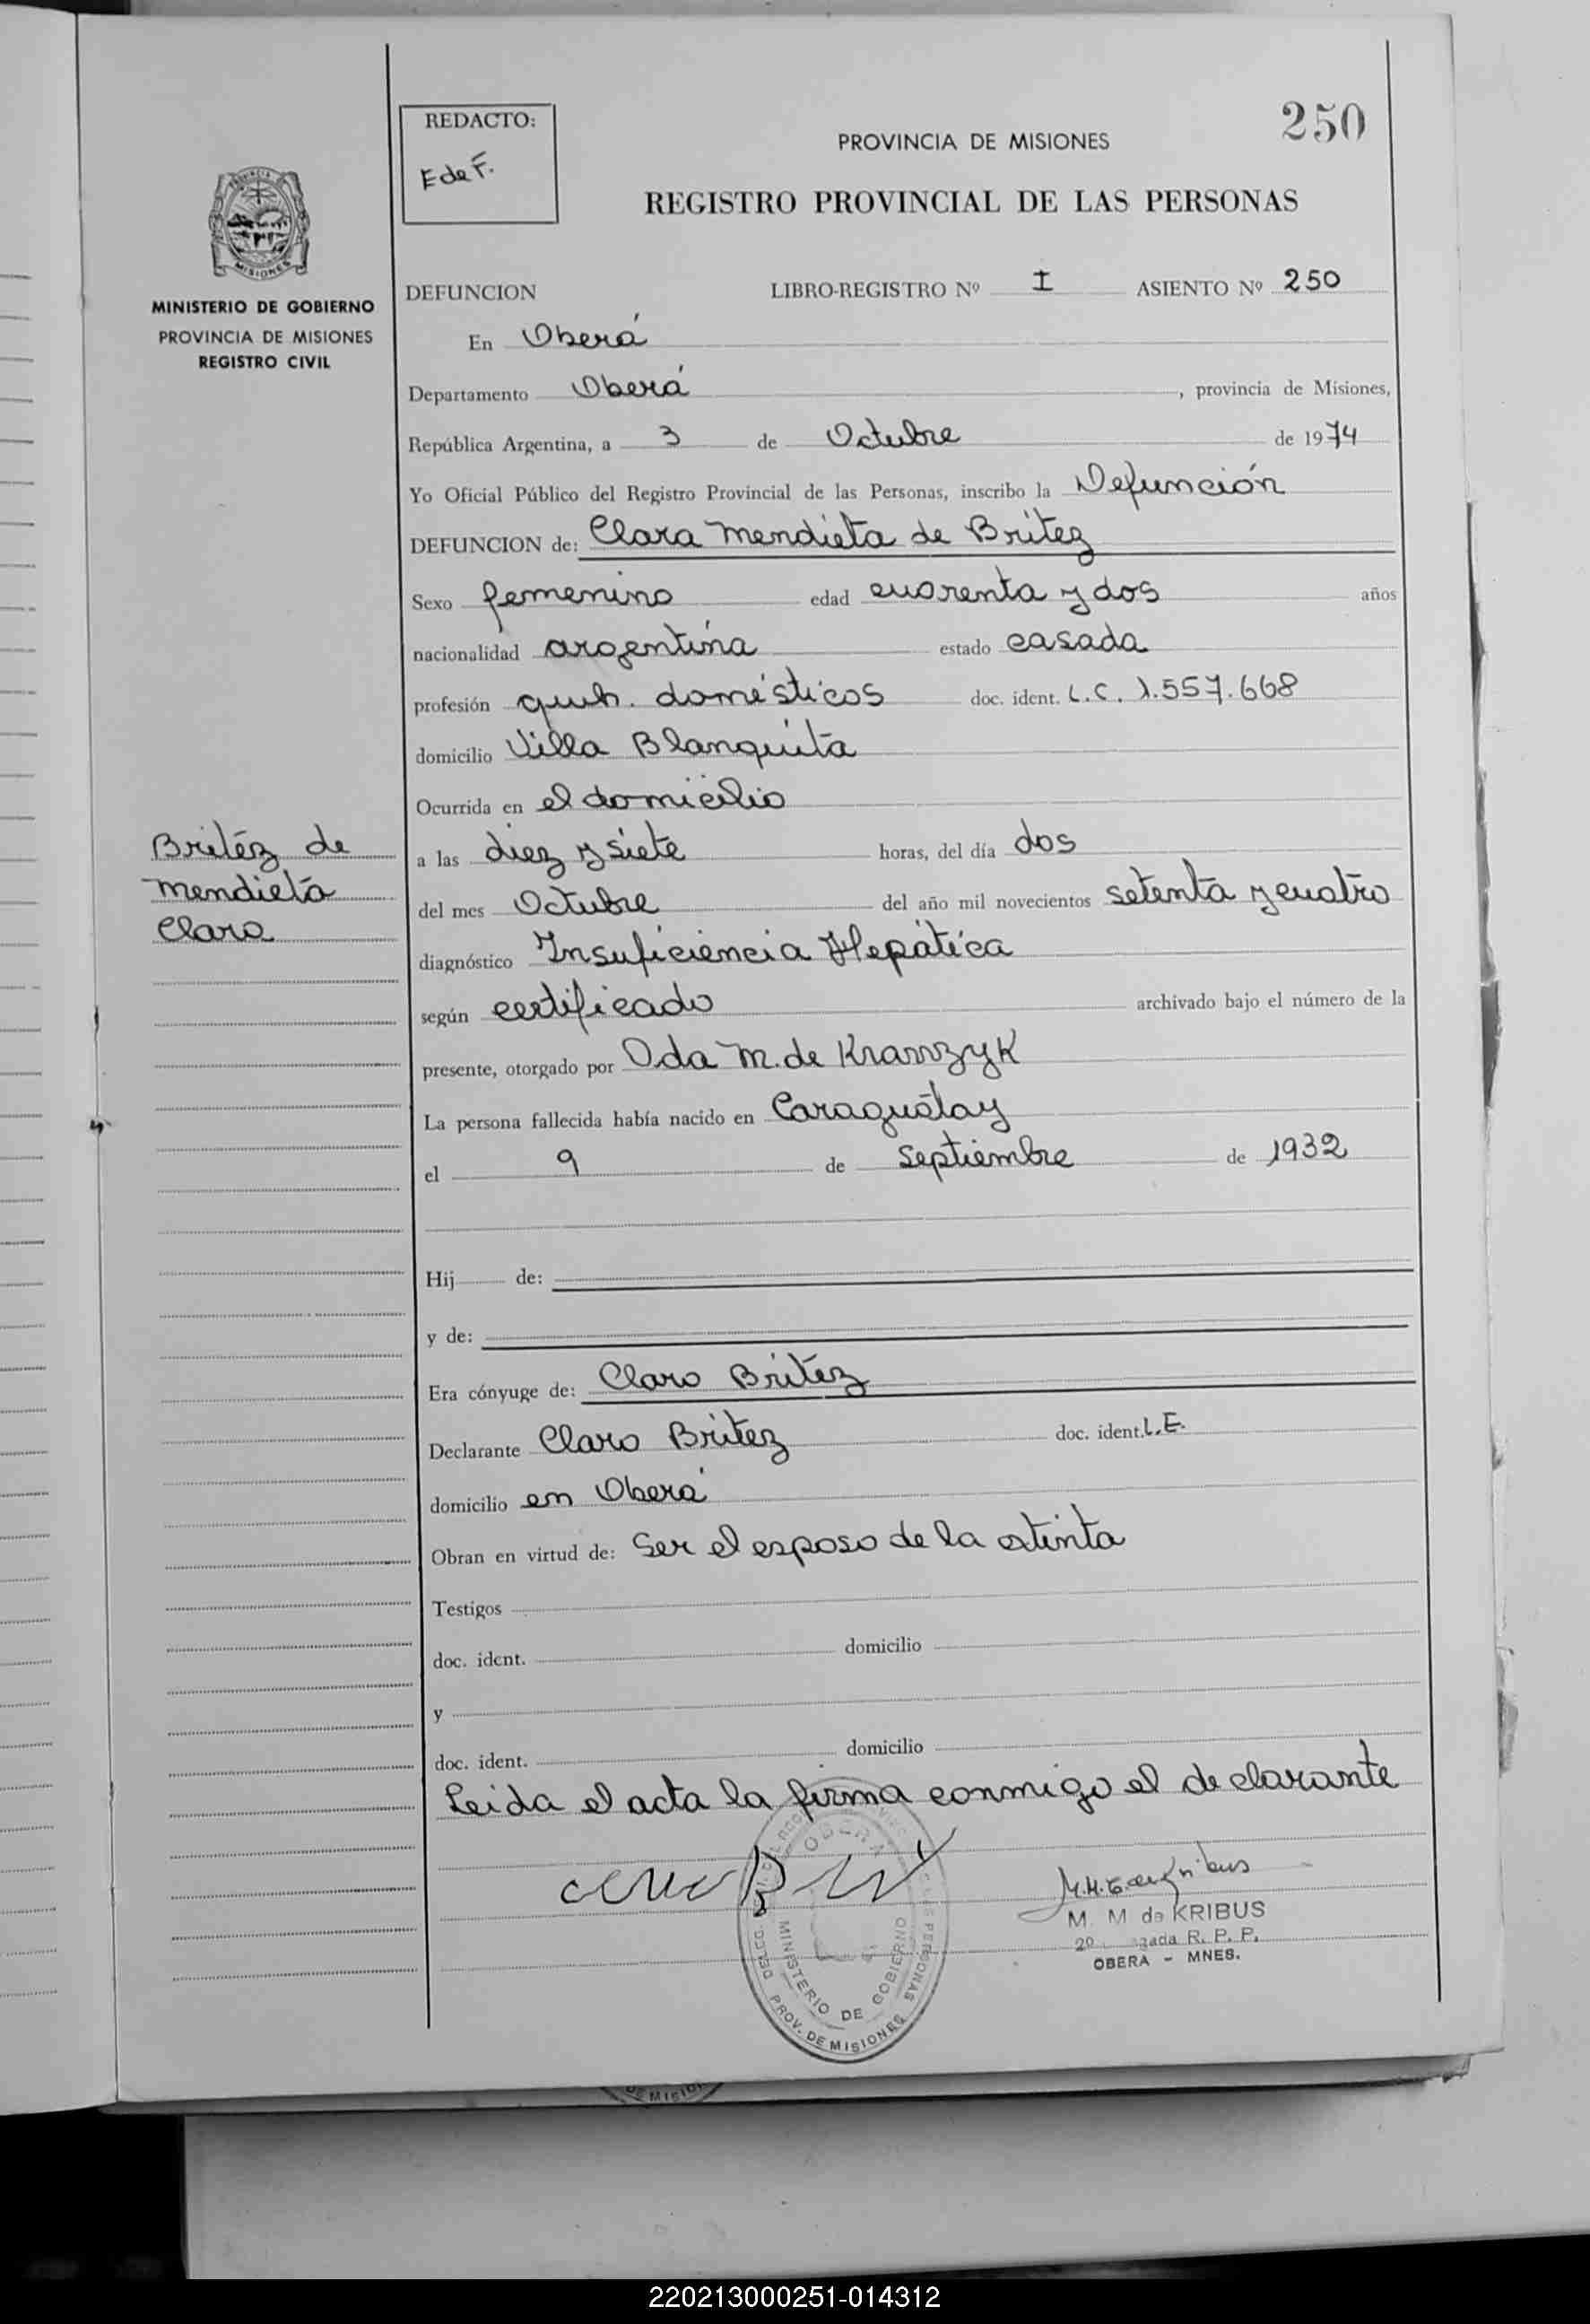 250
REDACTO:
E de F.
PROVINCIA DE MISIONES
REGISTRO PROVINCIAL DE LAS PERSONAS
MISIONES
MINISTERIO DE GOBIERNO
PROVINCIA DE MISIONES
REGISTRO CIVIL
DEFUNCION LIBRO-REGISTRO Nº I ASIENTO Nº 250
En Oberá
Departamento Oberá, provincia de Misiones,
República Argentina, a 3 de Octubre de 1974
Yo Oficial Público del Registro Provincial de las Personas, inscribo la Defunción
DEFUNCION de: Clara Mendieta de Britez
Sexo femenino edad cuarenta y dos años
nacionalidad argentina estado casada
profesión queh. domésticos doc. ident. L.C. 1.557.668
domicilio Villa Blanquita
Ocurrida en el domicilio
a las diez y siete horas, del día dos
del mes Octubre del año mil novecientos setenta y cuatro
diagnóstico Insuficiencia Hepática
según certificado archivado bajo el número de la
presente, otorgado por Oda M. de
La persona fallecida había nacido en Caraguatay
el 9 de septiembre de 1932
Hij de:
y de:
Era cónyuge de: Claro Britez
Declarante Claro Britez doc. ident. L.E.
domicilio en Oberá
Obran en virtud de: Ser el esposo de la extinta
Testigos
doc. ident. domicilio
y
doc. ident. domicilio
Leida el acta la firma conmigo el declarante
Britéz de
Mendieta
Clara
M. M de KRIBUS
R. P. P.
OBERA - MNES.
MINISTERIO DE GOBIERNO
PROV. DE MISIONES
DE MISION
220213000251-014312